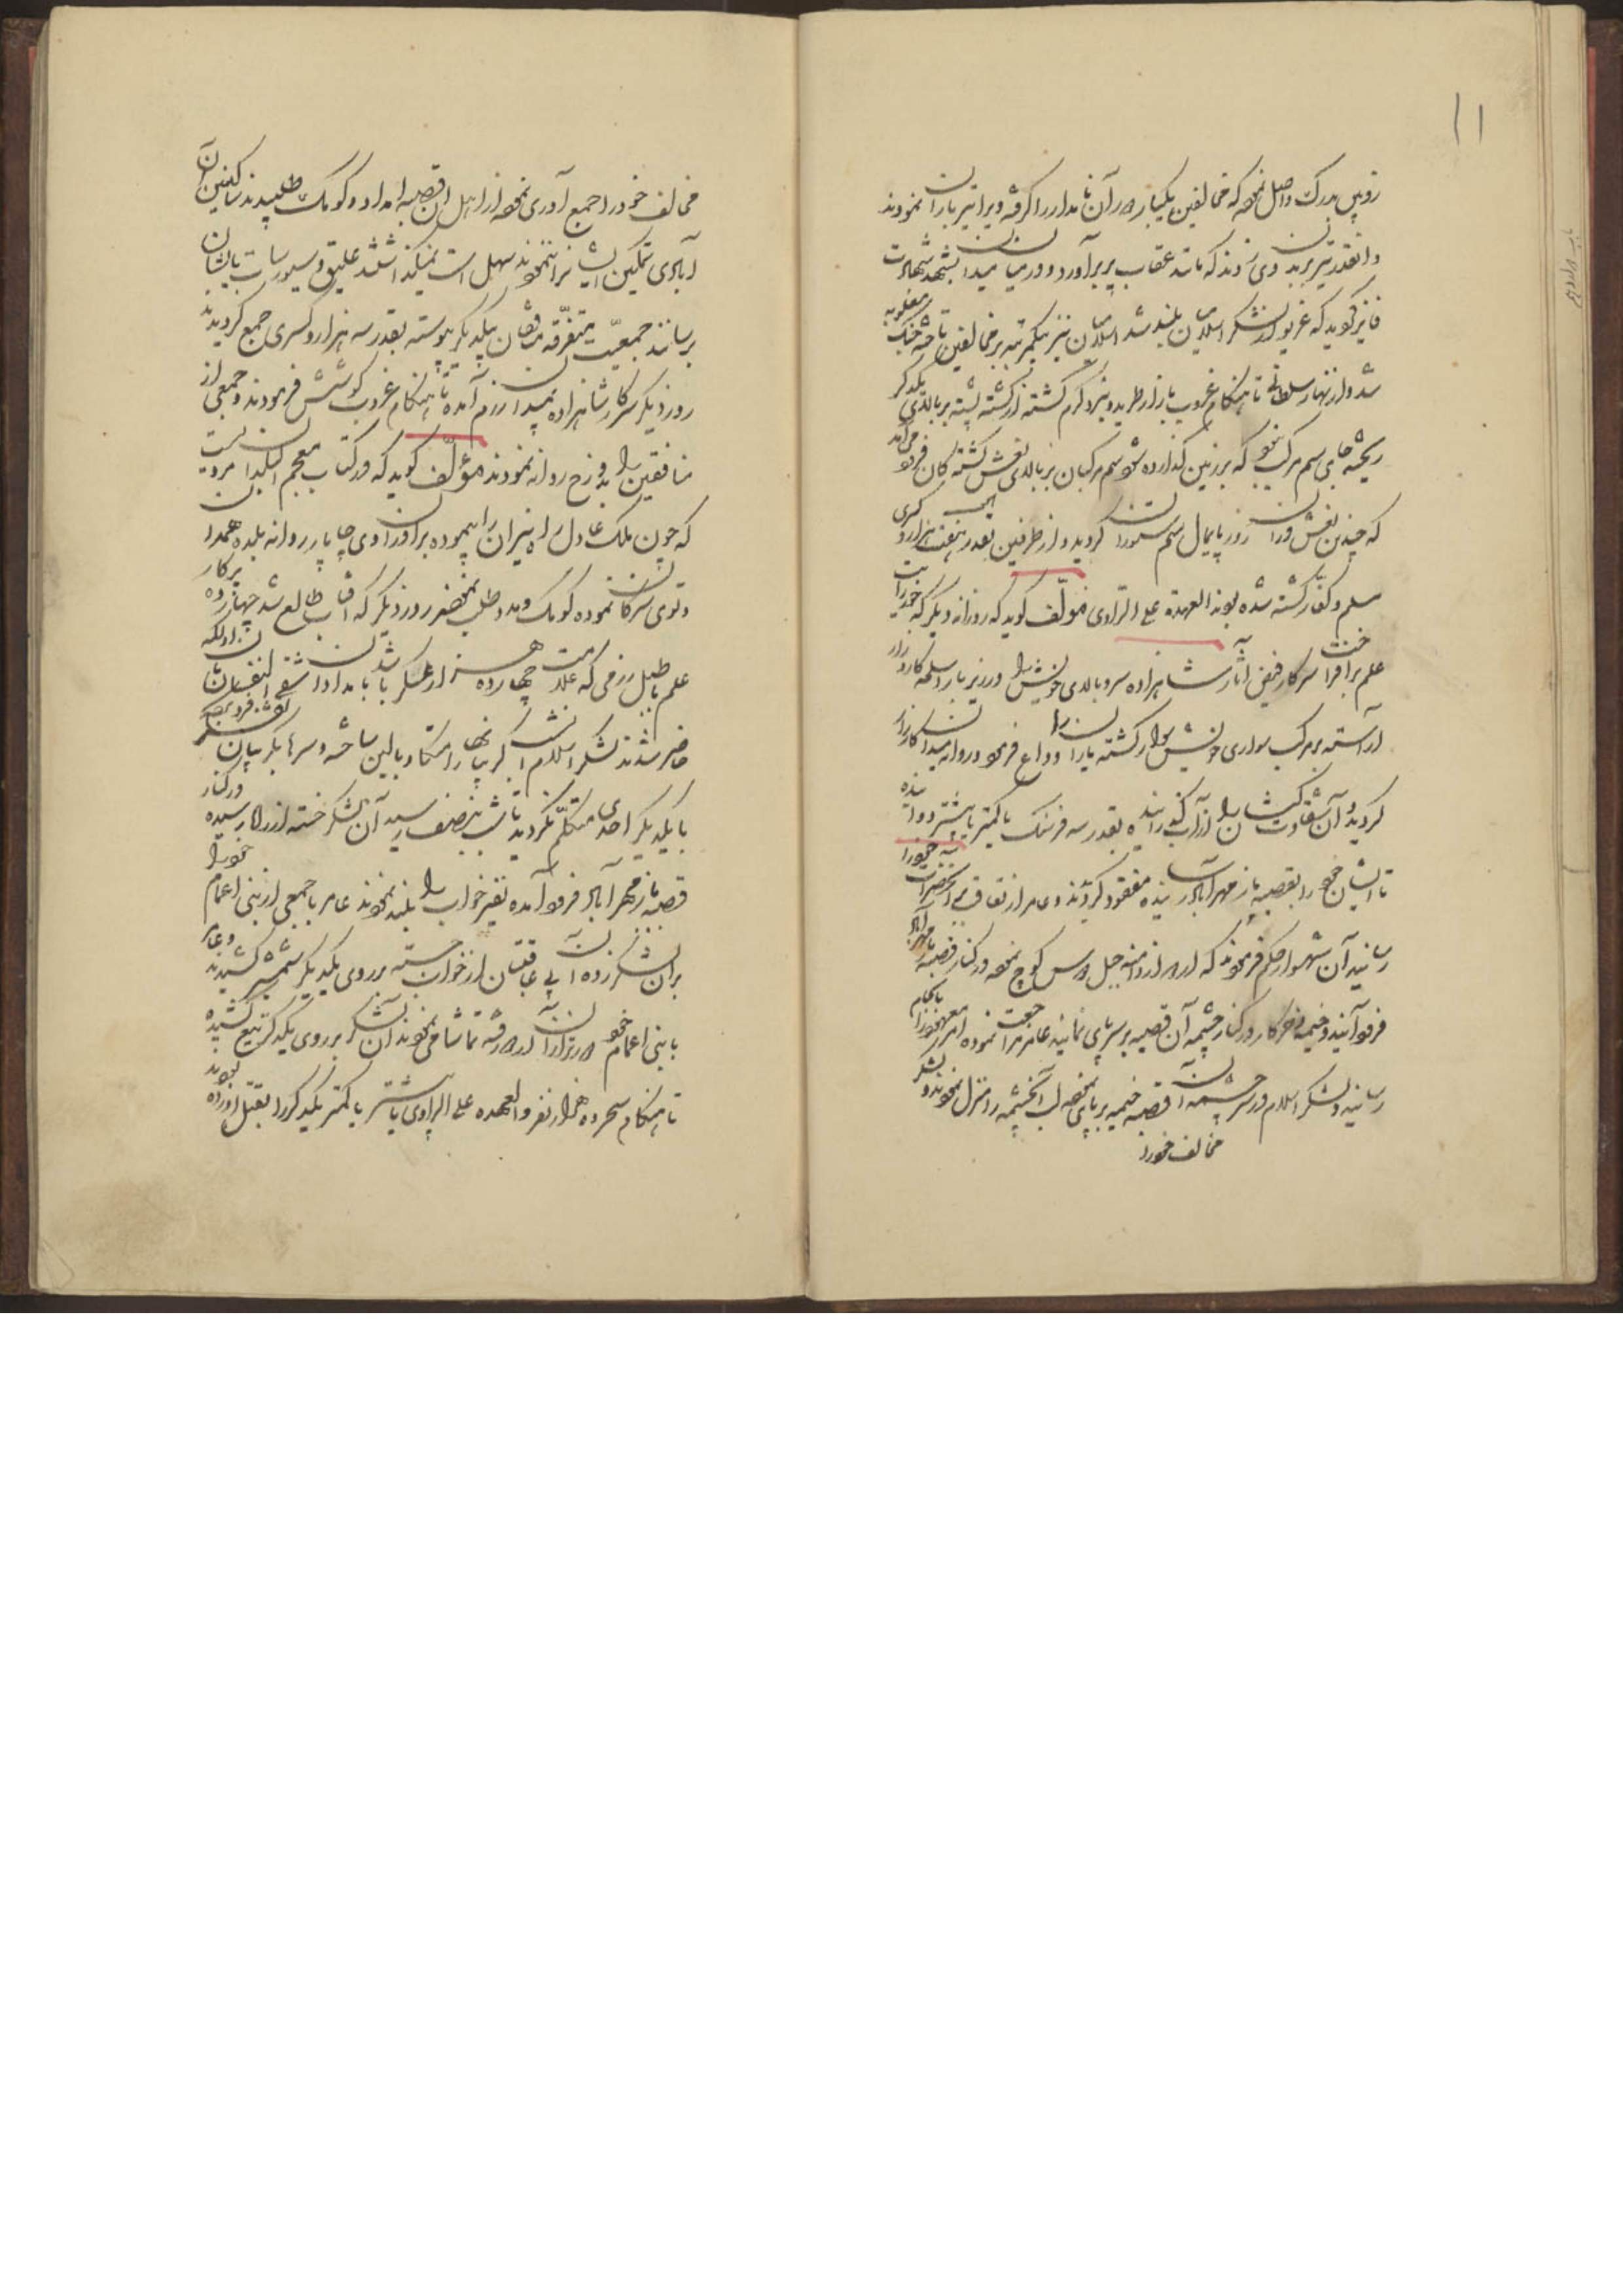 ۱۱
زوبین بدرک واصل نموده که مخالفین یکبار در آن نامدار را گرفته ویرا تیرباران نمودند
وانقدر تیر بر بدن وی زدند که مانند عقاب پر برآورد و در میان میدان بشهد شهادت
فایز گویند که غریو از لشکر اسلامیان بلند شد اسلامیان نیز بیکمرتبه بر مخالفین تاخته جنک مغلوبه
شد و از نهار سلطانی تا هنکام غروب بازار طرید و نبرد گرم گشته از کشته پشته بر بالای یکدگر
ریخته جای سم مرکب نبود که بر زمین گذارده شود سم مرکبان بر بالای نعش کشته کان فرود می آمد
که چندین نعش در آن روز پایمال سم ستوران گردید و از طرفین بقدر هفت هزار و کسری
مسلم و کفار کشته شده بودند العهدة علی الراوی مؤلف گوید که روزانه دیگر که خور رایت
علم برافراخت سرکار فیض آثار شاهزاده سر و بالای خویش را در زیر بار اسلحه کارزار
آراسته بر مرکب سواری خویش سوار گشته یاران را وداع فرمود و روانه میدان کارزار
گردید و آن شقاوت کیشان را از آب گذرانیده بقدر سه فرسنک یا کمتر یا بیشتر دوانیده
تا ایشان خود را بقصبه باز مهرآباد رسانیده مفقود گردیدند و عامر از تعاقب آنحضرت خود را
رسانید آن شهسوار حکم فرمودند که اردو از دامنه جبل درس کوچ نموده در کنار قصبه باز مهرآباد
فرود آیند و خیمه و خرگاه در کنار چشمه آن قصبه بر سر پای نمایند عامر مراجعت نموده امر معهود را بانجام
رسانید و لشکر اسلام در سر چشمه آن قصبه خیمه بر پای نموده لب آنچشمه را منزل نمودند و لشکر
مخالف خود را
مخالف خود را جمع آوری نموده از اهل آن قصبه امداد و کومک طلبیدند ساکنین آن
آبادی تمکین ایشانرا ننمودند سهل است نمیگذاشتند علیق و سیورسات بایشان
برسانند جمعیت متفرقه منافقان بیکدیگر پیوسته بقدر سه هزار و کسری جمع گردیدند
روز دیگر سرکار شاهزاده بمیدان رزم آمده تا هنکام غروب کوشش فرمودند و جمعی از
منافقین را بدوزخ روانه نمودند مؤلف گوید که در کتاب معجم البلدان مرویست
که چون ملک عادل راه نیران را پیموده برادران وی چاپار روانه بلده همدان
و توی سرکان نموده کومک و مدد طلب نمودند روز دیگر که آفتاب طالع شد چهارده پرکار
علم با طبل رزمی که علامت چهارده هزار عسکر باشد بامداد آن شقی النفسان بآن اولکه
حاضر شدند لشکر اسلام آن شب گریبانها را متکا و بالین ساخته و سرها بگریبان تفکر فرو برده
با یکدیگر احدی متکلم نگردید تا شب بنصف رسید آن لشکر خسته از راه رسیده در کنار
قصبه باز مهرآباد فرود آمده نفیر خواب را بلند نمودند عامر با جمعی از بنی اعمام خود را
بر آن لشکر زده آن بی عاقبتان از خواب جسته بر روی یکدیگر شمشیر کشیدند و عامر
با بنی اعمام خود در برابر آن اردو رفته تماشا می نمودند آن لشکر بر روی یکدگر تیغ کشیده
تا هنکام سحر ده هزار نفر و العهده علی الراوی یا بیشتر یا کمتر یکدیگر را بقتل آورده بودند